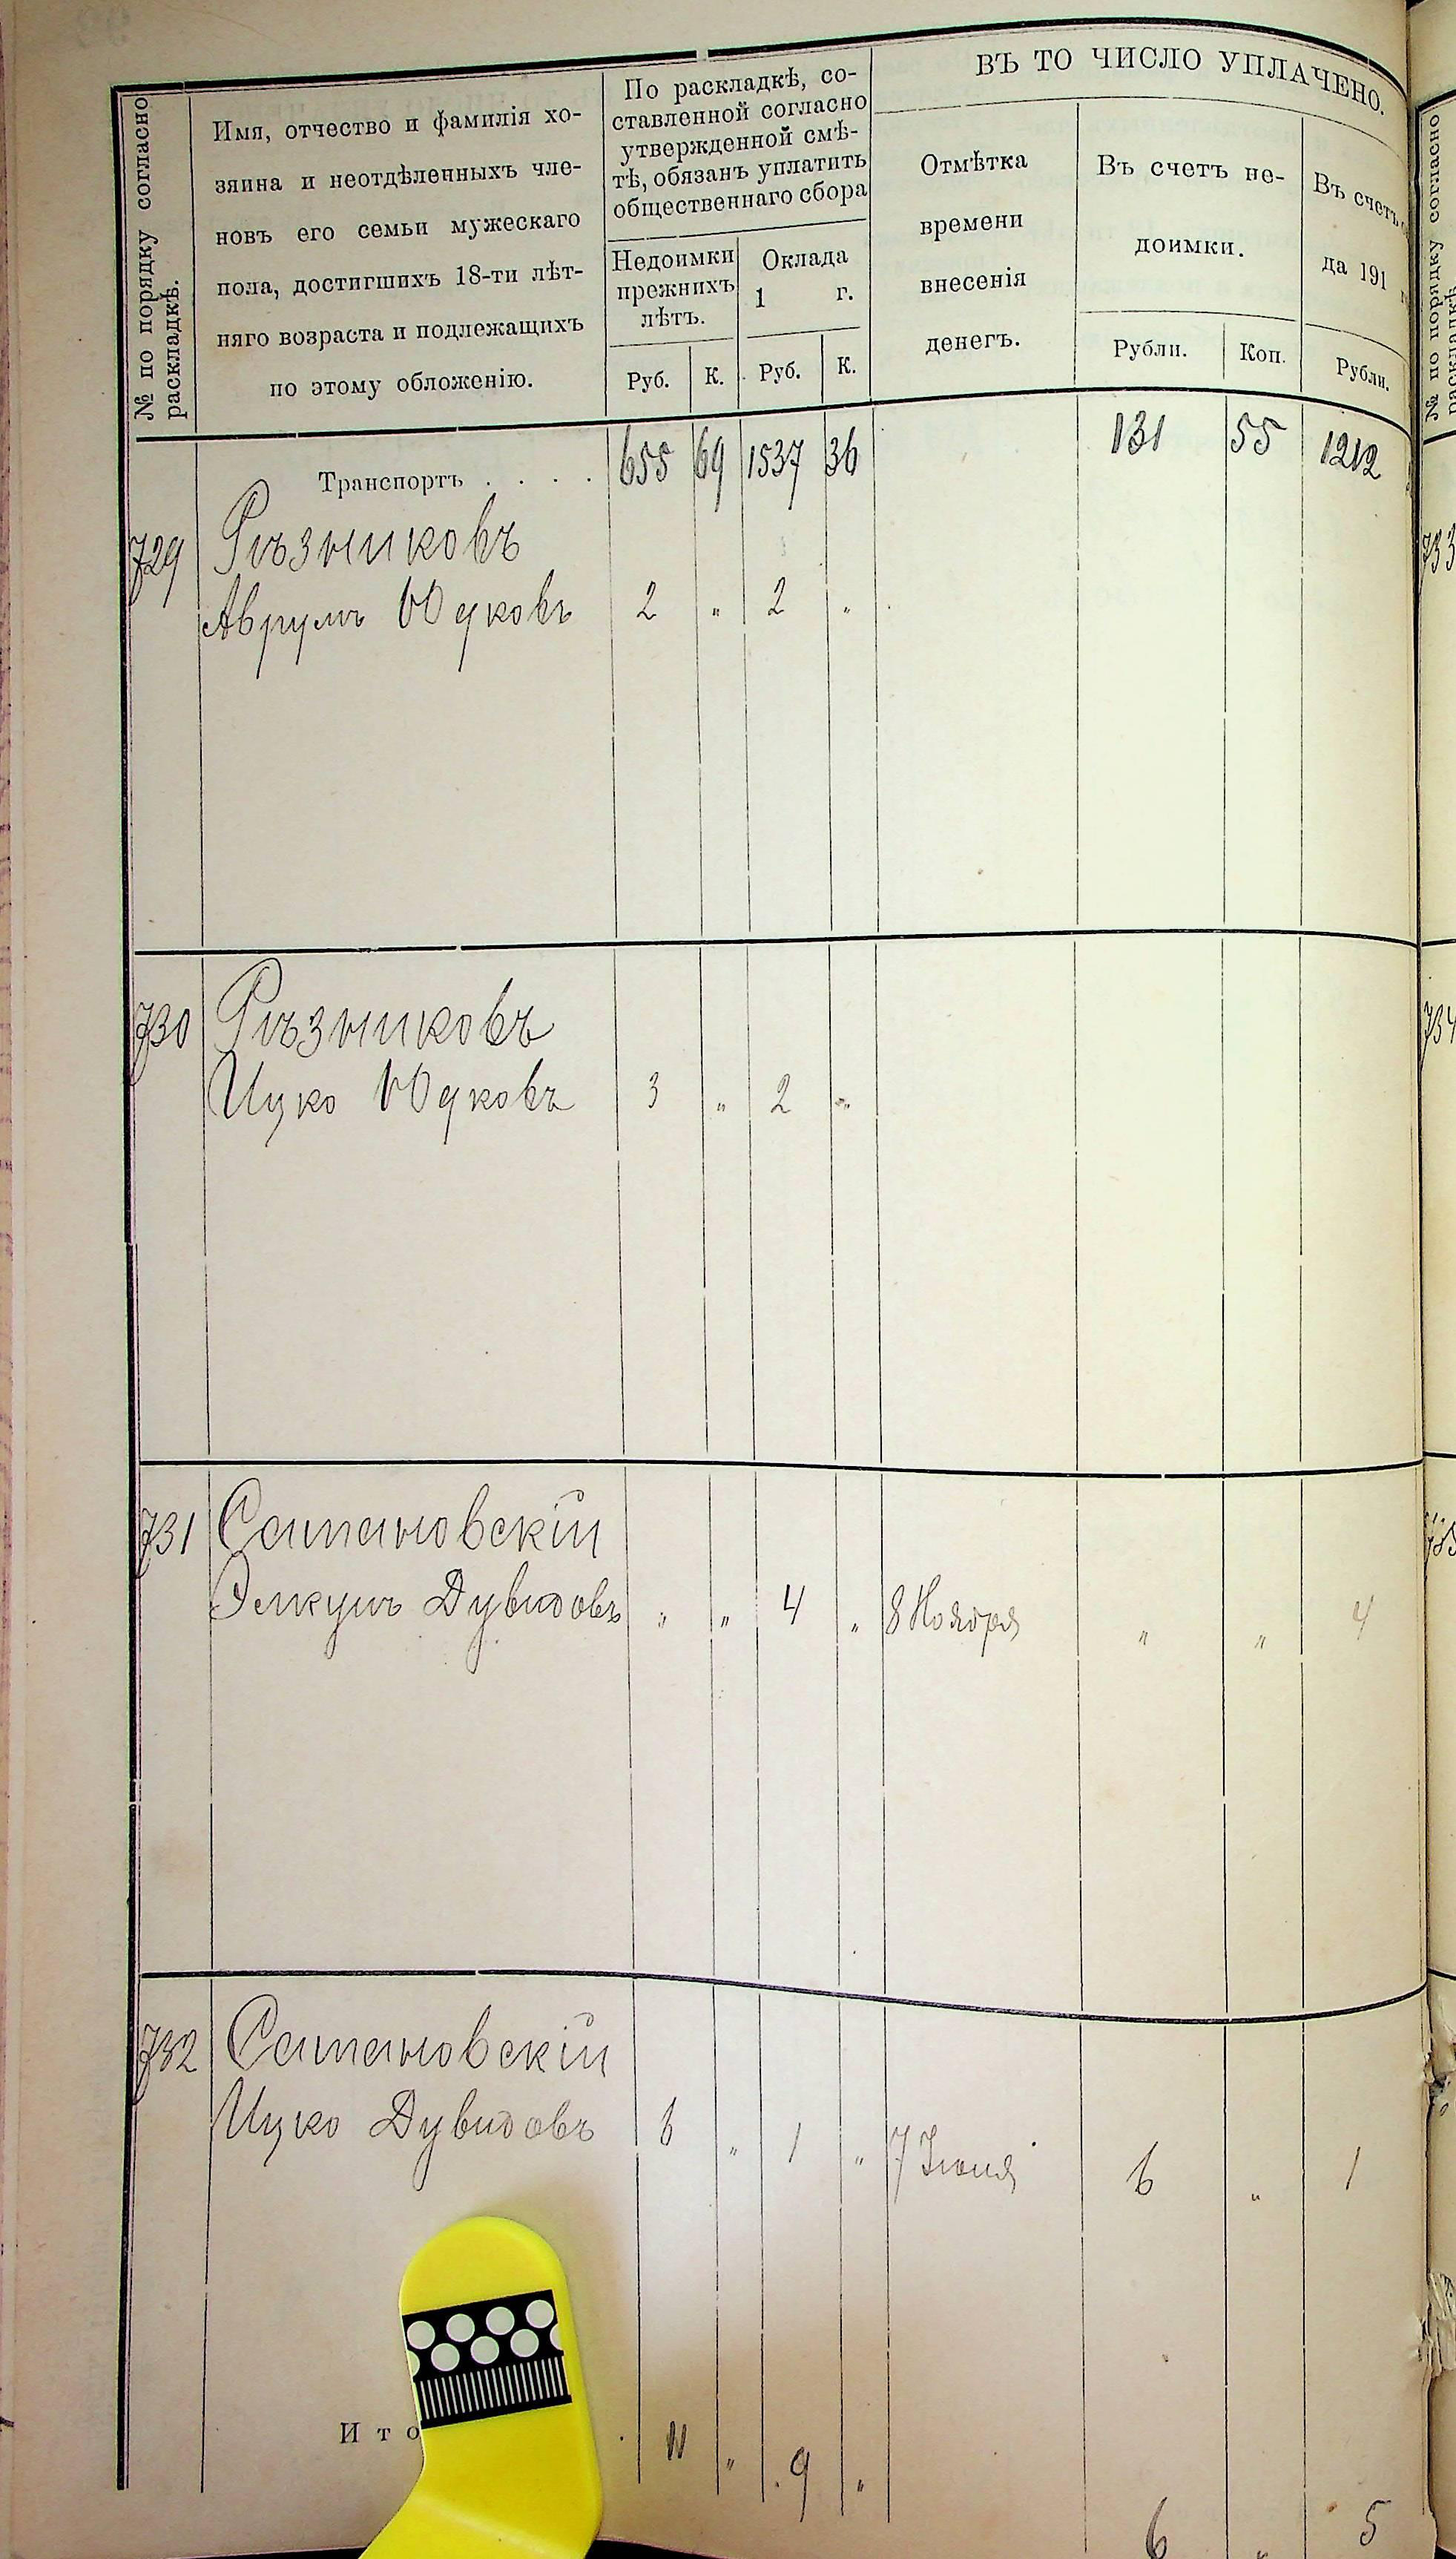 ВЪ ТО ЧИСЛО УПЛАЧЕНО.
№ по порядку согласно
раскладкѣ.
Имя, отчество и фамилія хо-
зяина и неотдѣленныхъ чле-
новъ его семьи мужескаго
пола, достигшихъ 18-ти лѣт-
няго возраста и подлежащихъ
по этому обложенію.
По раскладкѣ, со-
ставленной согласно
утвержденной смѣ-
тѣ, обязанъ уплатить
общественнаго сбора
Недоимки
прежнихъ
лѣтъ.
Оклада
1 г.
Руб. К. Руб. К.
Отмѣтка
времени
внесенія
денегъ.
Въ счетъ не-
доимки.
Рубли. Коп.
Въ счетъ
да 191
Рубли.
Транспортъ . . . . 655 69 1537 36 131 55 1212
729 Рѣзниковъ
Аврумъ Юдковъ 2 " 2 "
730 Рѣзниковъ
Ицко Юдковъ 3 " 2 "
731 Сатановскій
Элкунъ Дувидовъ " " 4 " 8 Ноября " " 4
732 Сатановскій
Ицко Дувидовъ 6 " 1 " 7 Іюня 6 " 1
Ито . 11 " 9 "
6 " 5
№ по порядку согласно
раскладкѣ.
733
734